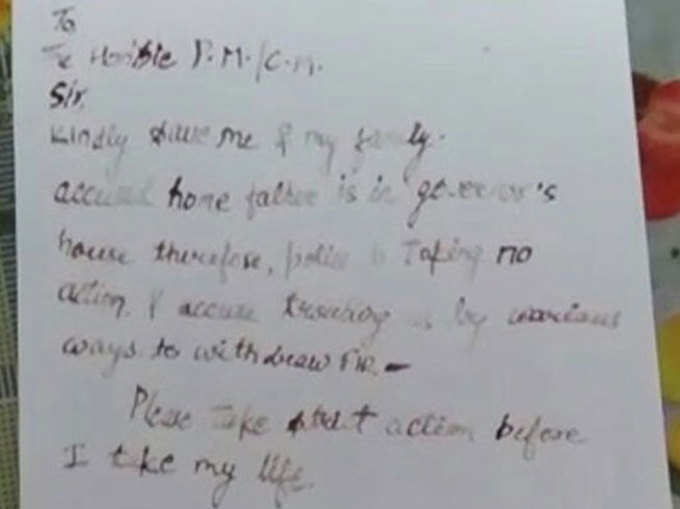 To
The Hon'ble P.M./C.M.
Sir,
Kindly save me & my family.
accused home father is in governor's
house therefore, police is Taking no
action. & accuse trouching us by warious
ways to withdraw FIR.-
Please Take strict action before
I take my life.